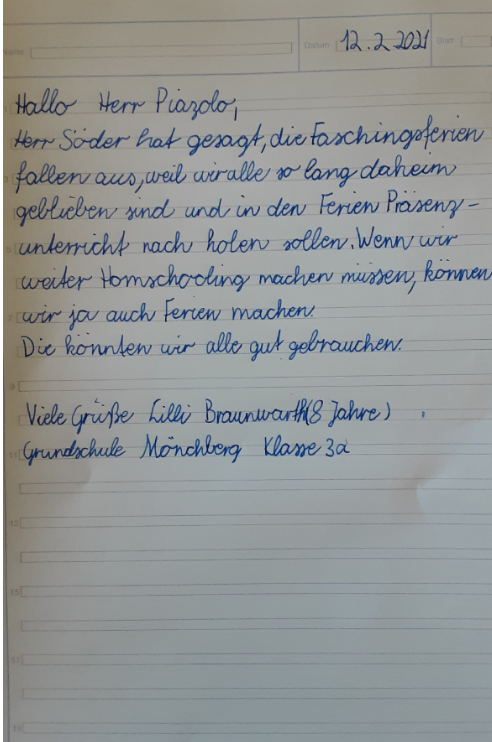 Datum 12.2.2021
Hallo Herr Piazolo,
Herr Söder hat gesagt, die Faschingsferien
fallen aus, weil wir alle so lang daheim
geblieben sind und in den Ferien Präsenz-
unterricht nach holen sollen. Wenn wir
weiter Homschooling machen müssen, können
wir ja auch Ferien machen.
Die könnten wir alle gut gebrauchen.
Viele Grüße Lilli Braunwarth (8 Jahre)
Grundschule Mönchberg Klasse 3a